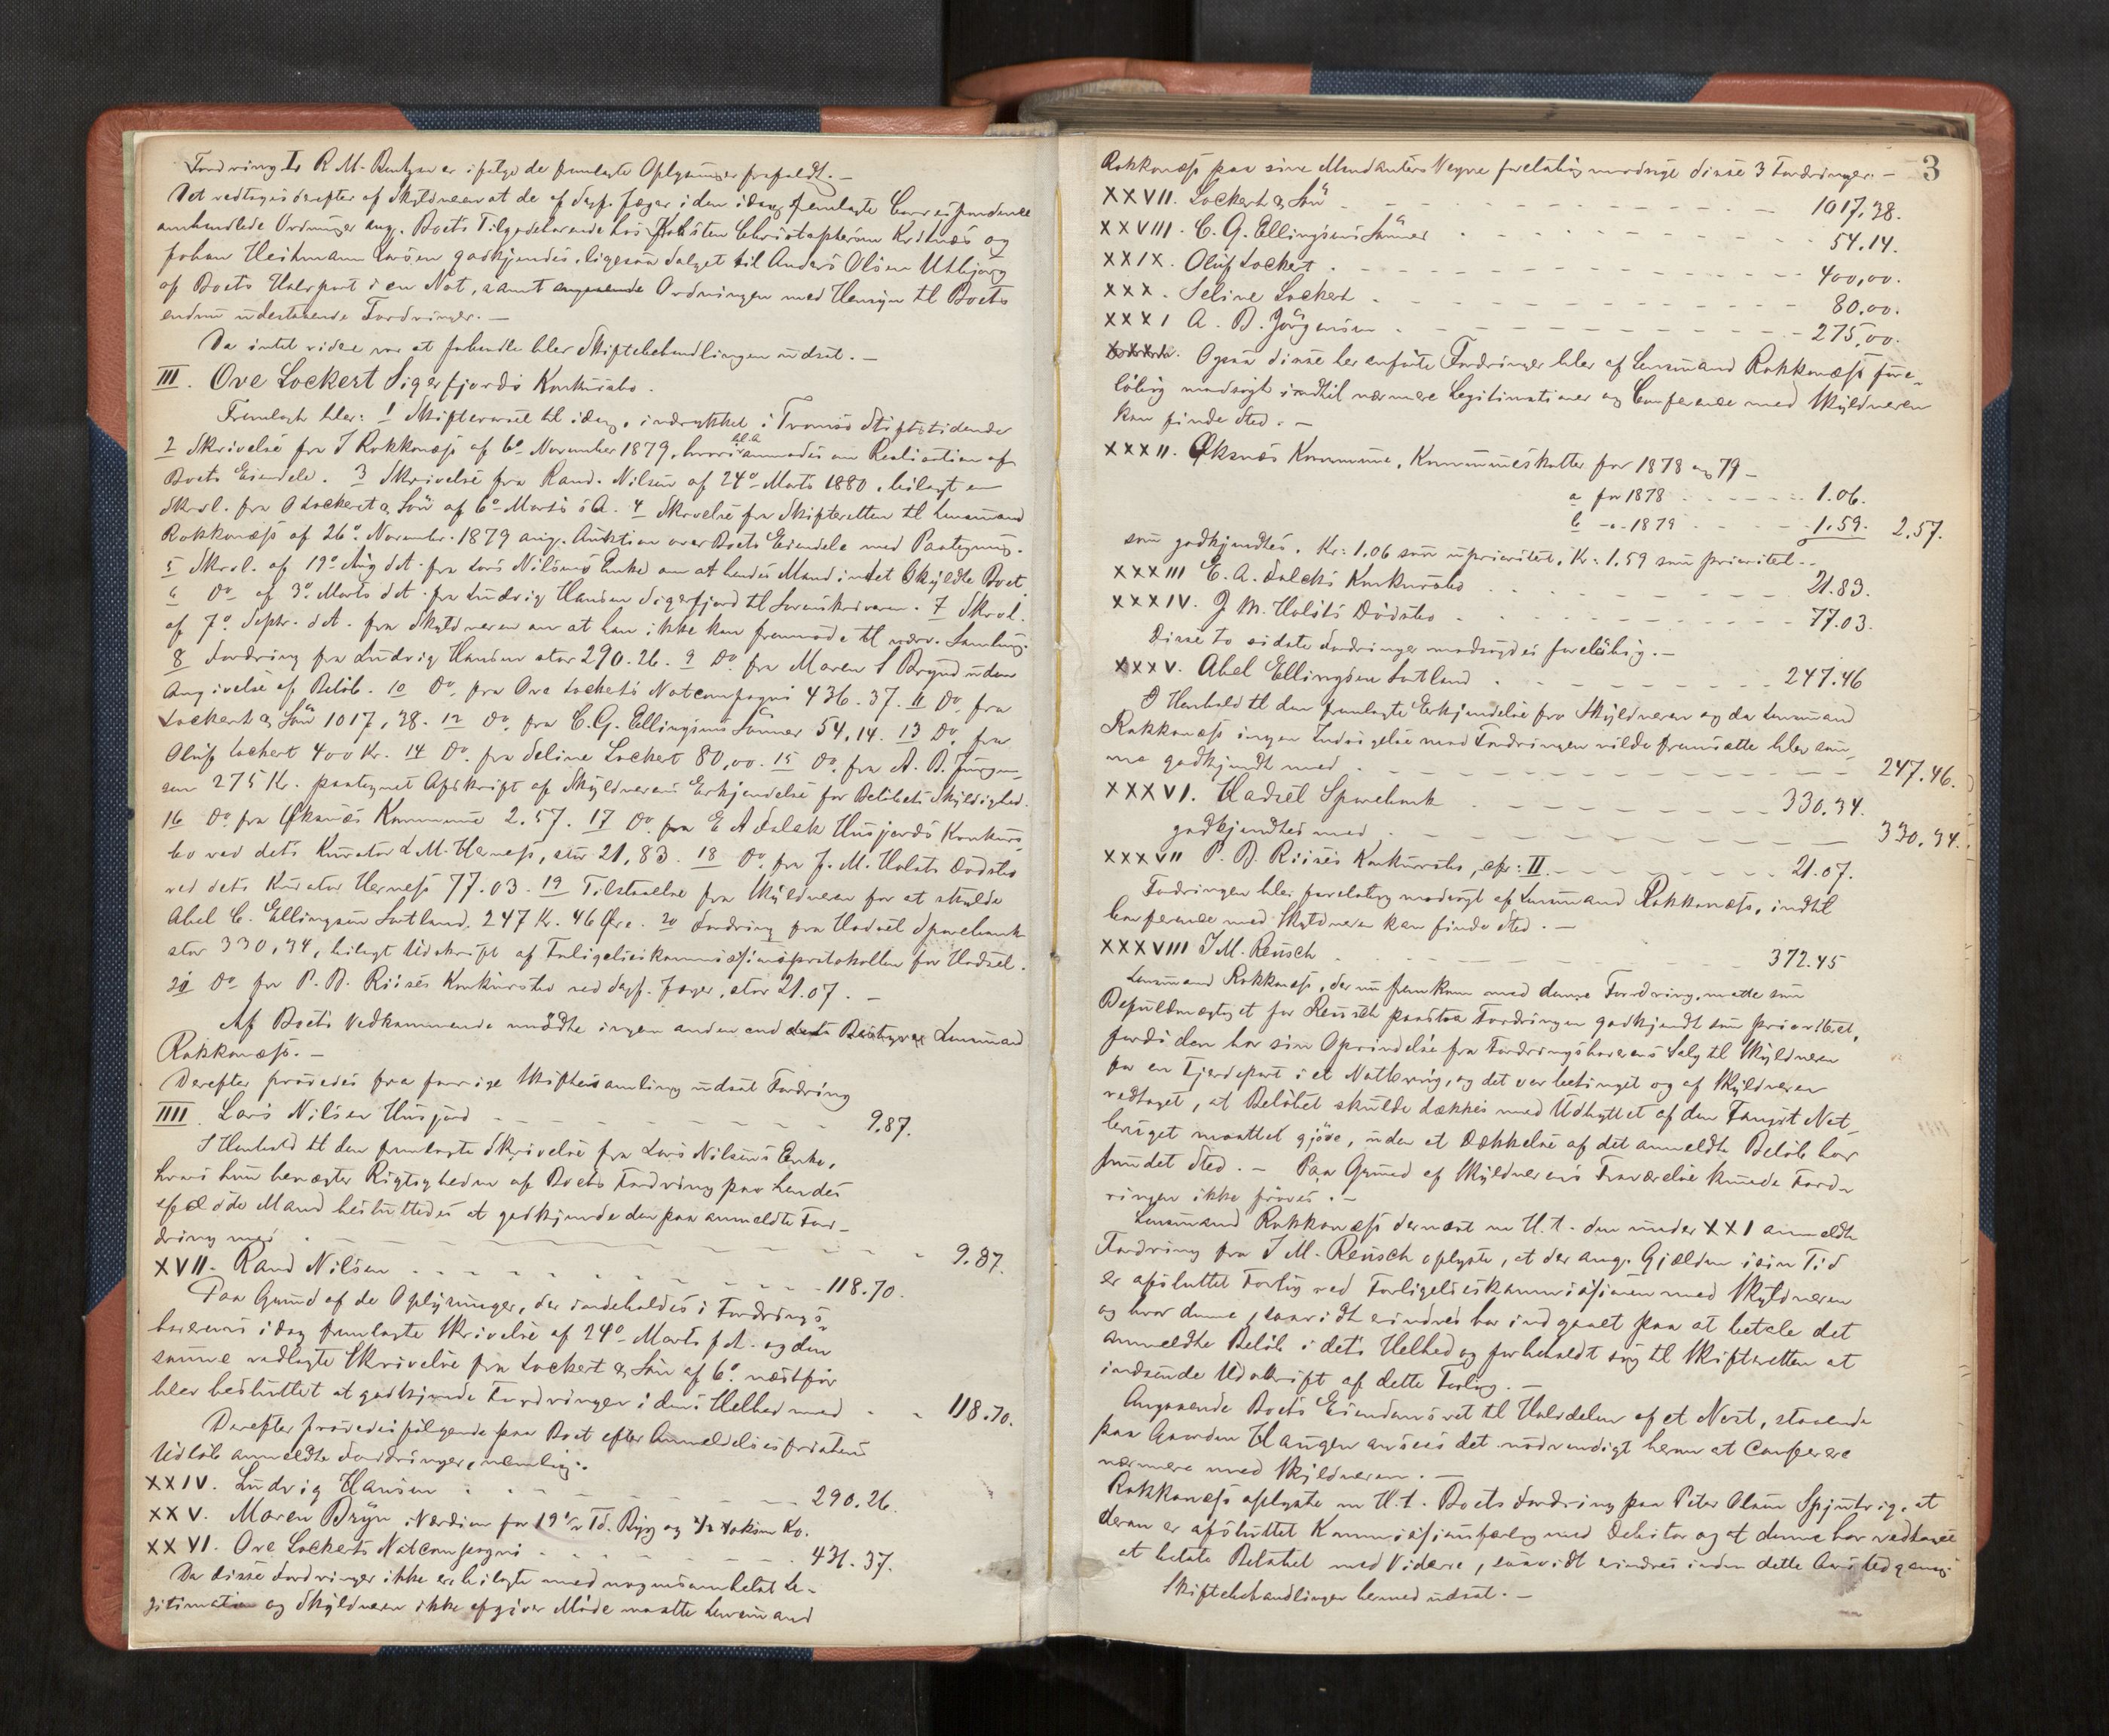 Fordring I. R M. Bentzen er ifølge de fremlagte Oplysninger frafaldt. —
Det vedtoges derefter af Skyldneren at de af Sagf. Jæger i den idag fremlagte Correspondence
omhandlede Ordninger ang. Boets Tilgodehavende hos Karsten Christophersen og
Johan Heitmann Larsen godkjendes, ligesaa Salget til Anders Olsen Utbjørg
af Boets Halvpart i en Not, samt angaaende Ordningen med Hensyn til Boets
endnu udestaaende Fordringer. —
Da intet videre var at forhandle blev Skiftebehandlingen udsat. —
III. Ove Lockert Sigerfjords Konkursbo.
Fremlagt blev: 1 Skiftevarsel til idag, indrykket i Tromsø Stiftstidende
2 Skrivelse fra J Rokkonæss af 6te November 1879, hvori bl. a. anmodes om Realisation af
Boets Eiendele. 3 Skrivelse fra Rand. Nilsen af 24de Marts 1880, bilagt en
Skrvl. fra O Lockert & Søn af 6te Marts s A. 4 Skrivelse fra Skifteretten til Lensmand
Rokkonæss af 26de November 1879 ang. Auktion over Boets Eiendele med Paategning.
5 Skrvl. af 19de Aug d A. fra Lars Nilsens Enke om at hendes Mand intet skyldte Boet.
6 Do af 3de Marts d A. fra Ludvig Hansen Sigerfjord til Sorenskriveren. 7 Skrvl.
af 7de Septr. d A. fra Skyldneren om at han ikke kan fremmøde til nærv. Samling.
8 Fordring fra Ludvig Hansen stor 290.26. 9 Do fra Maren S Brynd uden
Angivelse af Beløb. 10 Do fra Ove Lockerts Notcompagni 436.37. 11 Do fra
Lockert & Søn 1017,38. 12 Do fra C. G. Ellingsens Sønner 54.14. 13 Do fra
Oluf Lockert 400 Kr. 14 Do fra Seline Lockert 80,00. 15 Do fra A. B. Jørgen-
sen 275 Kr. paategnet Afskrift af Skyldnerens Erkjendelse for Beløbets Skyldighed.
16 Do fra Øksnæs Kommune 2.57. 17 Do fra E A Falck Husjords Konkurs-
bo ved dets Kurator L M. Herness, stor 21,83. 18 Do fra J. M. Holsts Dødsbo
ved dets Kurator Herness 77.03. 19 Tilstaaelse fra Skyldneren for at skylde
Abel C. Ellingsen Sortland, 247 Kr. 46 Øre. 20 Fordring fra Hadsel Sparebank
stor 330,34, bilagt Udskrift af Forligelseskommissionsprotokollen for Hadsel.
21 Do fra P. D. Riises Konkursbo ved Sagf. Jæger, stor 21.07. —
Af Boets Vedkommende mødte ingen anden end dets Bestyrer Lensmand
Rokkonæss. —
Derefter prøvedes fra forrige Skiftesamling udsat Fordring
IIII. Lars Nilsen Husjord 9.87.
I Henhold til den fremlagte Skrivelse fra Lars Nilsens Enke,
hvori hun benægter Rigtigheden af Boets Fordring paa hendes
afdøde Mand besluttedes at godkjende den paa anmeldte For-
dring med 9.87.
XVII. Rand Nilsen 118.70.
Paa Grund af de Oplysninger, der indeholdes i Fordrings-
haverens idag fremlagte Skrivelse af 24de Marts f A. og den
samme vedlagte Skrivelse fra Lockert & Søn af 6te næstfør
blev besluttet at godkjende Fordringen i dens Helhed med 118.70.
Derefter prøvedes følgende paa Boet efter Anmeldelsesfristens
Udløb anmeldte Fordringer, nemlig:
XXIV. Ludvig Hansen 290.26.
XXV. Maren Bryn Værdien for 19 1/2 Td. Byg og 1/2 Ko.
XXVI. Ove Lockerts Notcompagni 436.37.
Da disse Fordringer ikke er bilagte med nogensomhelst Le-
gitimation og Skyldneren ikke afgiver Møde maatte Lensmand
3
Rokkonæss paa sine Mandanters Vegne foreløbig modsige disse 3 Fordringer. —
XXVII. Lockert & Søn 1017,38.
XXVIII. C. G. Ellingsens Sønner 54.14.
XXIX. Oluf Lockert 400,00.
XXX. Seline Lockert 80.00.
XXXI A. B. Jørgensen 275,00.
Ogsaa disse her anførte Fordringer blev af Lensmand Rokkonæss fore-
løbig modsagt indtil nærmere Legitimationer og Conference med Skyldneren
kan finde Sted. —
XXXII. Øksnæs Kommune, Kommuneskatter for 1878 og 79 —
a for 1878 1.06.
b -"- 1879 1.59. 2,57.
som godkjendtes, Kr: 1,06 som uprioritet, Kr: 1,59 som prioritet. -
XXXIII E. A. Falcks Konkursbo 21.83.
XXXIV. J M. Holsts Dødsbo 77.03.
Disse to sidste Fordringer modsagdes foreløbig. —
XXXV. Abel Ellingsen Sortland 247.46
I Henhold til den fremlagte Erkjendelse fra Skyldneren og da Lensmand
Rokkonæss ingen Indsigelse mod Fordringen vilde fremsætte blev sam-
me godkjendt med 247.46.
XXXVI. Hadsel Sparebank 330.34.
godkjendtes med 330.34.
XXXVII P. D. Riises Konkursbo, cfr: II. 21.07.
Fordringen blev foreløbig modsagt af Lensmand Rokkonæss, indtil
Conference med Skyldneren kan finde Sted. —
XXXVIII J M. Reusch 372.45
Lensmand Rokkonæss, der nu fremkom med denne Fordring, maatte som
Befuldmægtiget for Reusch paastaa Fordringen godkjendt som prioriteret,
fordi den har sin Oprindelse fra Fordringshaverens Salg til Skyldneren
for en Fjerdepart i et Notbrug, og det var betinget og af Skyldneren
vedtaget, at Beløbet skulde dækkes med Udbyttet af den Fangst Not-
bruget maattet gjøre, uden at Dækkelse af det anmeldte Beløb har
fundet Sted. — Paa Grund af Skyldnerens Fraværelse kunde Ford-
ringen ikke prøves. —
Lensmand Rokkonæss dernæst m H. t. den under XXI anmeldte
Fordring fra J M. Reusch oplyste, at der ang. Gjælden i sin Tid
er afsluttet Forlig ved Forligelseskommissionen med Skyldneren
og hvor denne, saavidt erindres har indgaaet paa at betale det
anmeldte Beløb i dets Helhed og forbeholdt sig til Skifteretten at
indsende Udskrift af dette Forlig. —
Angaaende Boets Eiendomsret til Halvdelen af et Nøst, staaende
paa Gaarden Haugen ansees det nødvendigt herom at Conferere
nærmere med Skyldneren. —
Rokkonæss oplyste m H. t. Boets Fordring paa Peter Olsen Spjutvig, at
derom er afsluttet Kommissionsforlig med Debitor og at denne har vedtaget
at betale Beløbet med Videre, saavidt erindres inden dette Aars Udgang.
Skiftebehandlingen hermed udsat. —